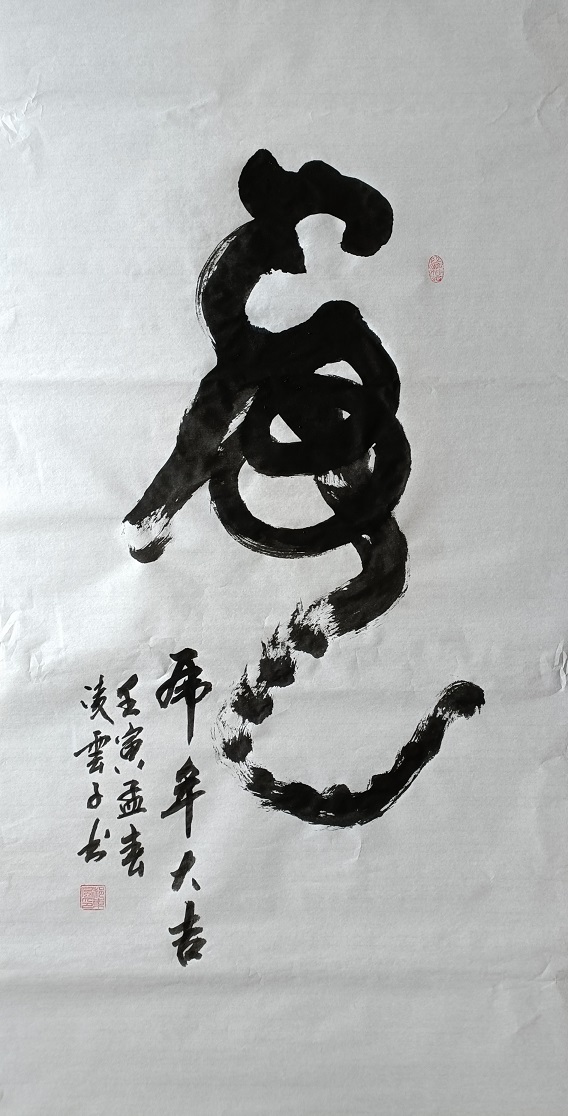 虎
虎年大吉
壬寅孟春
凌雲子书